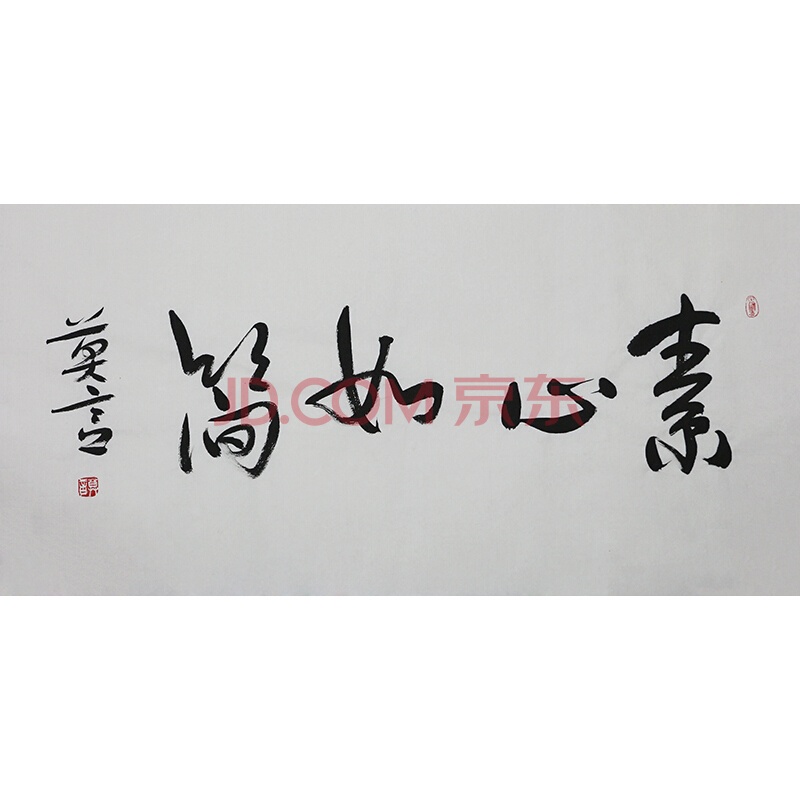 素心如简
莫言
JD.COM 京东